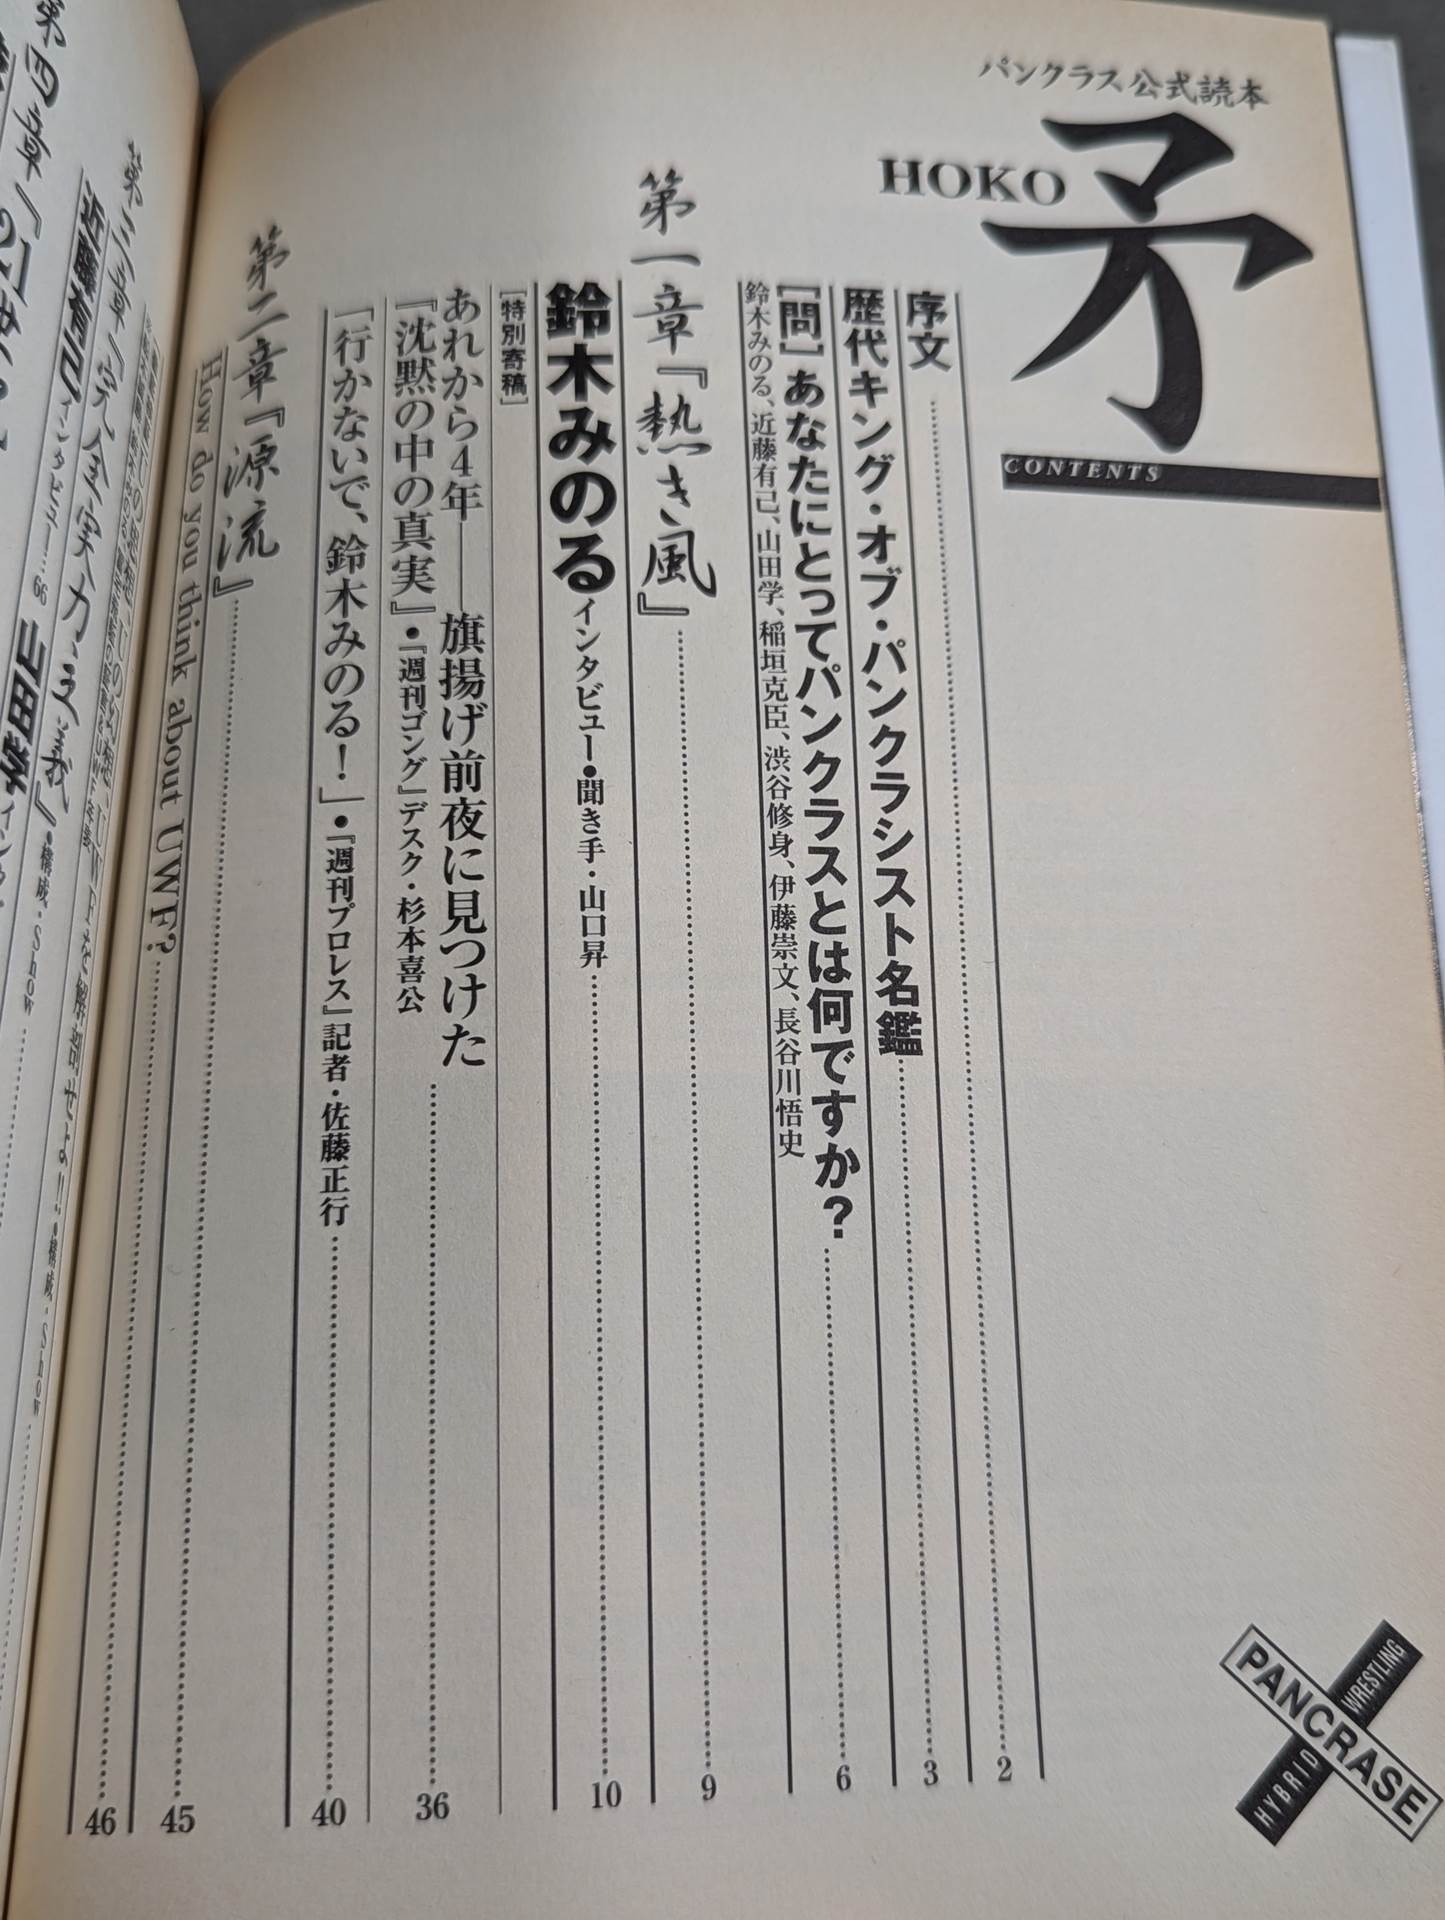 パンクラス公式読本
矛
HOKO
CONTENTS
序文 2
歴代キング・オブ・パンクラシスト名鑑 3
[問]あなたにとってパンクラスとは何ですか? 6
鈴木みのる、近藤有己、山田学、稲垣克臣、渋谷修身、伊藤崇文、長谷川悟史
第一章『熱き風』 9
鈴木みのるインタビュー●聞き手・山口昇 10
[特別寄稿]
あれから4年──旗揚げ前夜に見つけた 36
『沈黙の中の真実』●『週刊ゴング』デスク・杉本喜公
「行かないで、鈴木みのる!」●『週刊プロレス』記者・佐藤正行 40
第二章『源流』 45
How do you think about UWF? 46
UWFを解剖せよ!!●構成・Show
第三章『完全実力主義』●構成・Show
近藤有己インタビュー 66
山田学
第四章『
PANCRASE
HYBRID WRESTLING